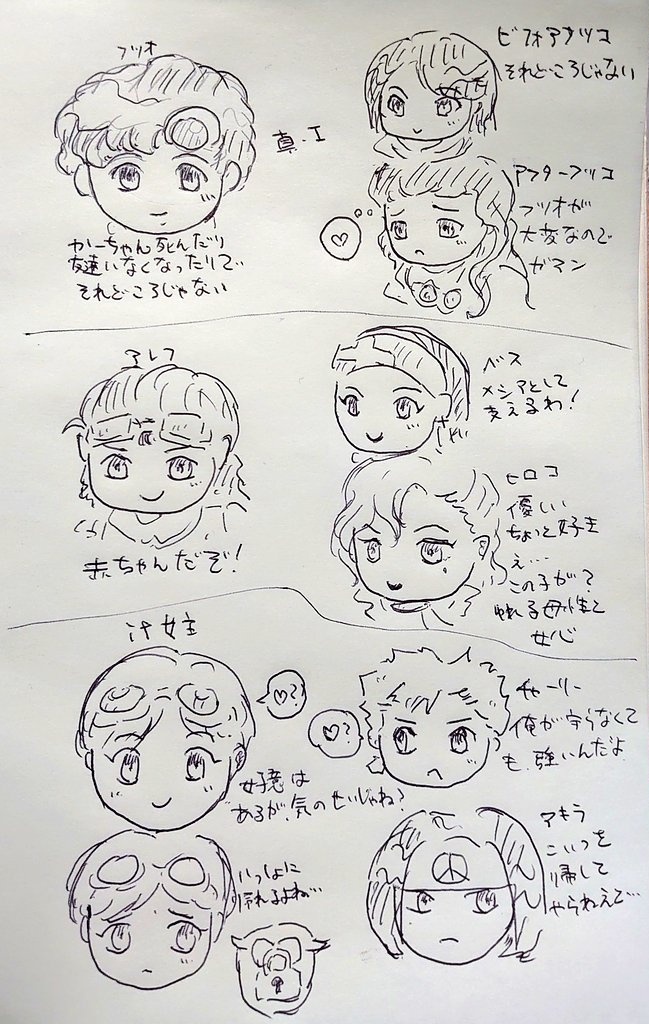 フツオ
真・I
かーちゃん死んだり
友達いなくなったりで
それどころじゃない
ビフォアフツコ
それどころじゃない
アフターフツコ
フツオが
大変なので
ガマン
アレフ
赤ちゃんだぞ!
ベス
メシアとして
支えるわ!
ヒロコ
優しい
ちょっと好き
え…
この子が?
れる母性と
女心
女主
♡?
好意は
あるが、気のせいじゃね?
♡?
チャーリー
俺が守らなくて
も、強いんだよ
いっしょに
帰れるよね…
アキラ
こいつを
帰して
やらねえで…